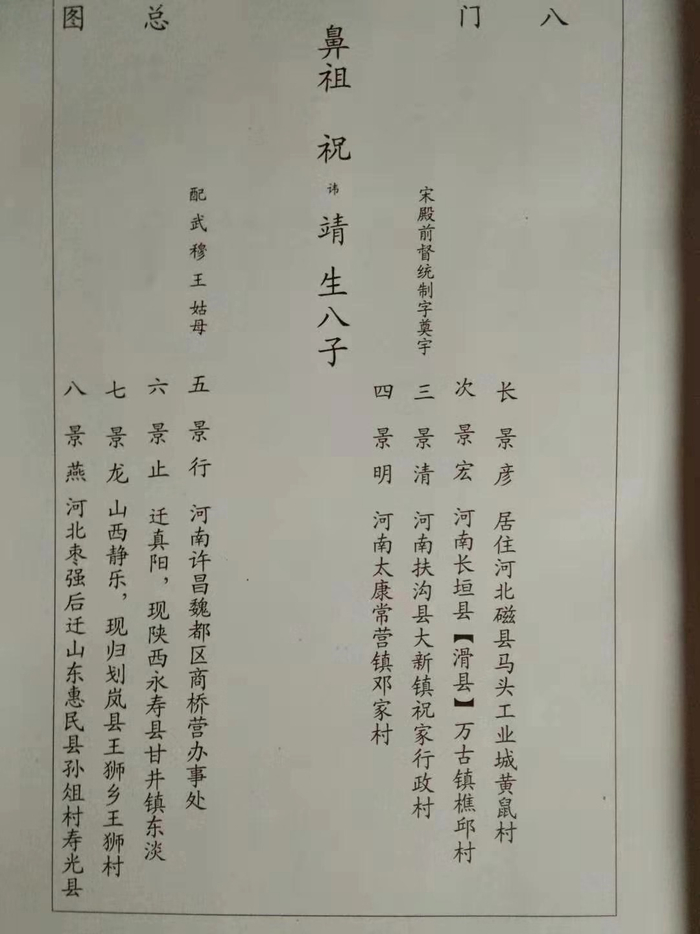 八门总图
长 景彦 居住河北磁县马头工业城黄鼠村
次 景宏 河南长垣县【滑县】万古镇樵邱村
三 景清 河南扶沟县大新镇祝家行政村
四 景明 河南太康常营镇邓家村
宋殿前督统制字奠宇
鼻祖 祝 讳 靖 生八子
配武穆王姑母
五 景行 河南许昌魏都区商桥营办事处
六 景止 迁真阳，现陕西永寿县甘井镇东淡
七 景龙 山西静乐，现归划岚县王狮乡王狮村
八 景燕 河北枣强后迁山东惠民县孙俎村寿光县